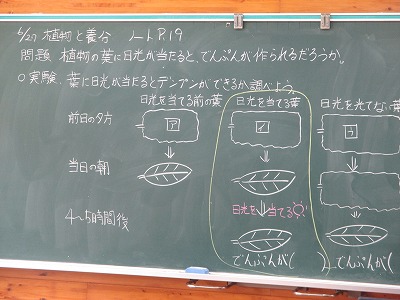 6/27 植物と養分 ノートP.19
問題 植物の葉に日光が当たると、でんぷんが作られるだろうか。
○実験、葉に日光が当たるとデンプンができるか調べよう。
日光を当てる前の葉 日光を当てる葉 日光を当てない葉
前日の夕方 ア イ ウ
当日の朝
日光を当てる
4〜5時間後
でんぷんが( ) でんぷんが(